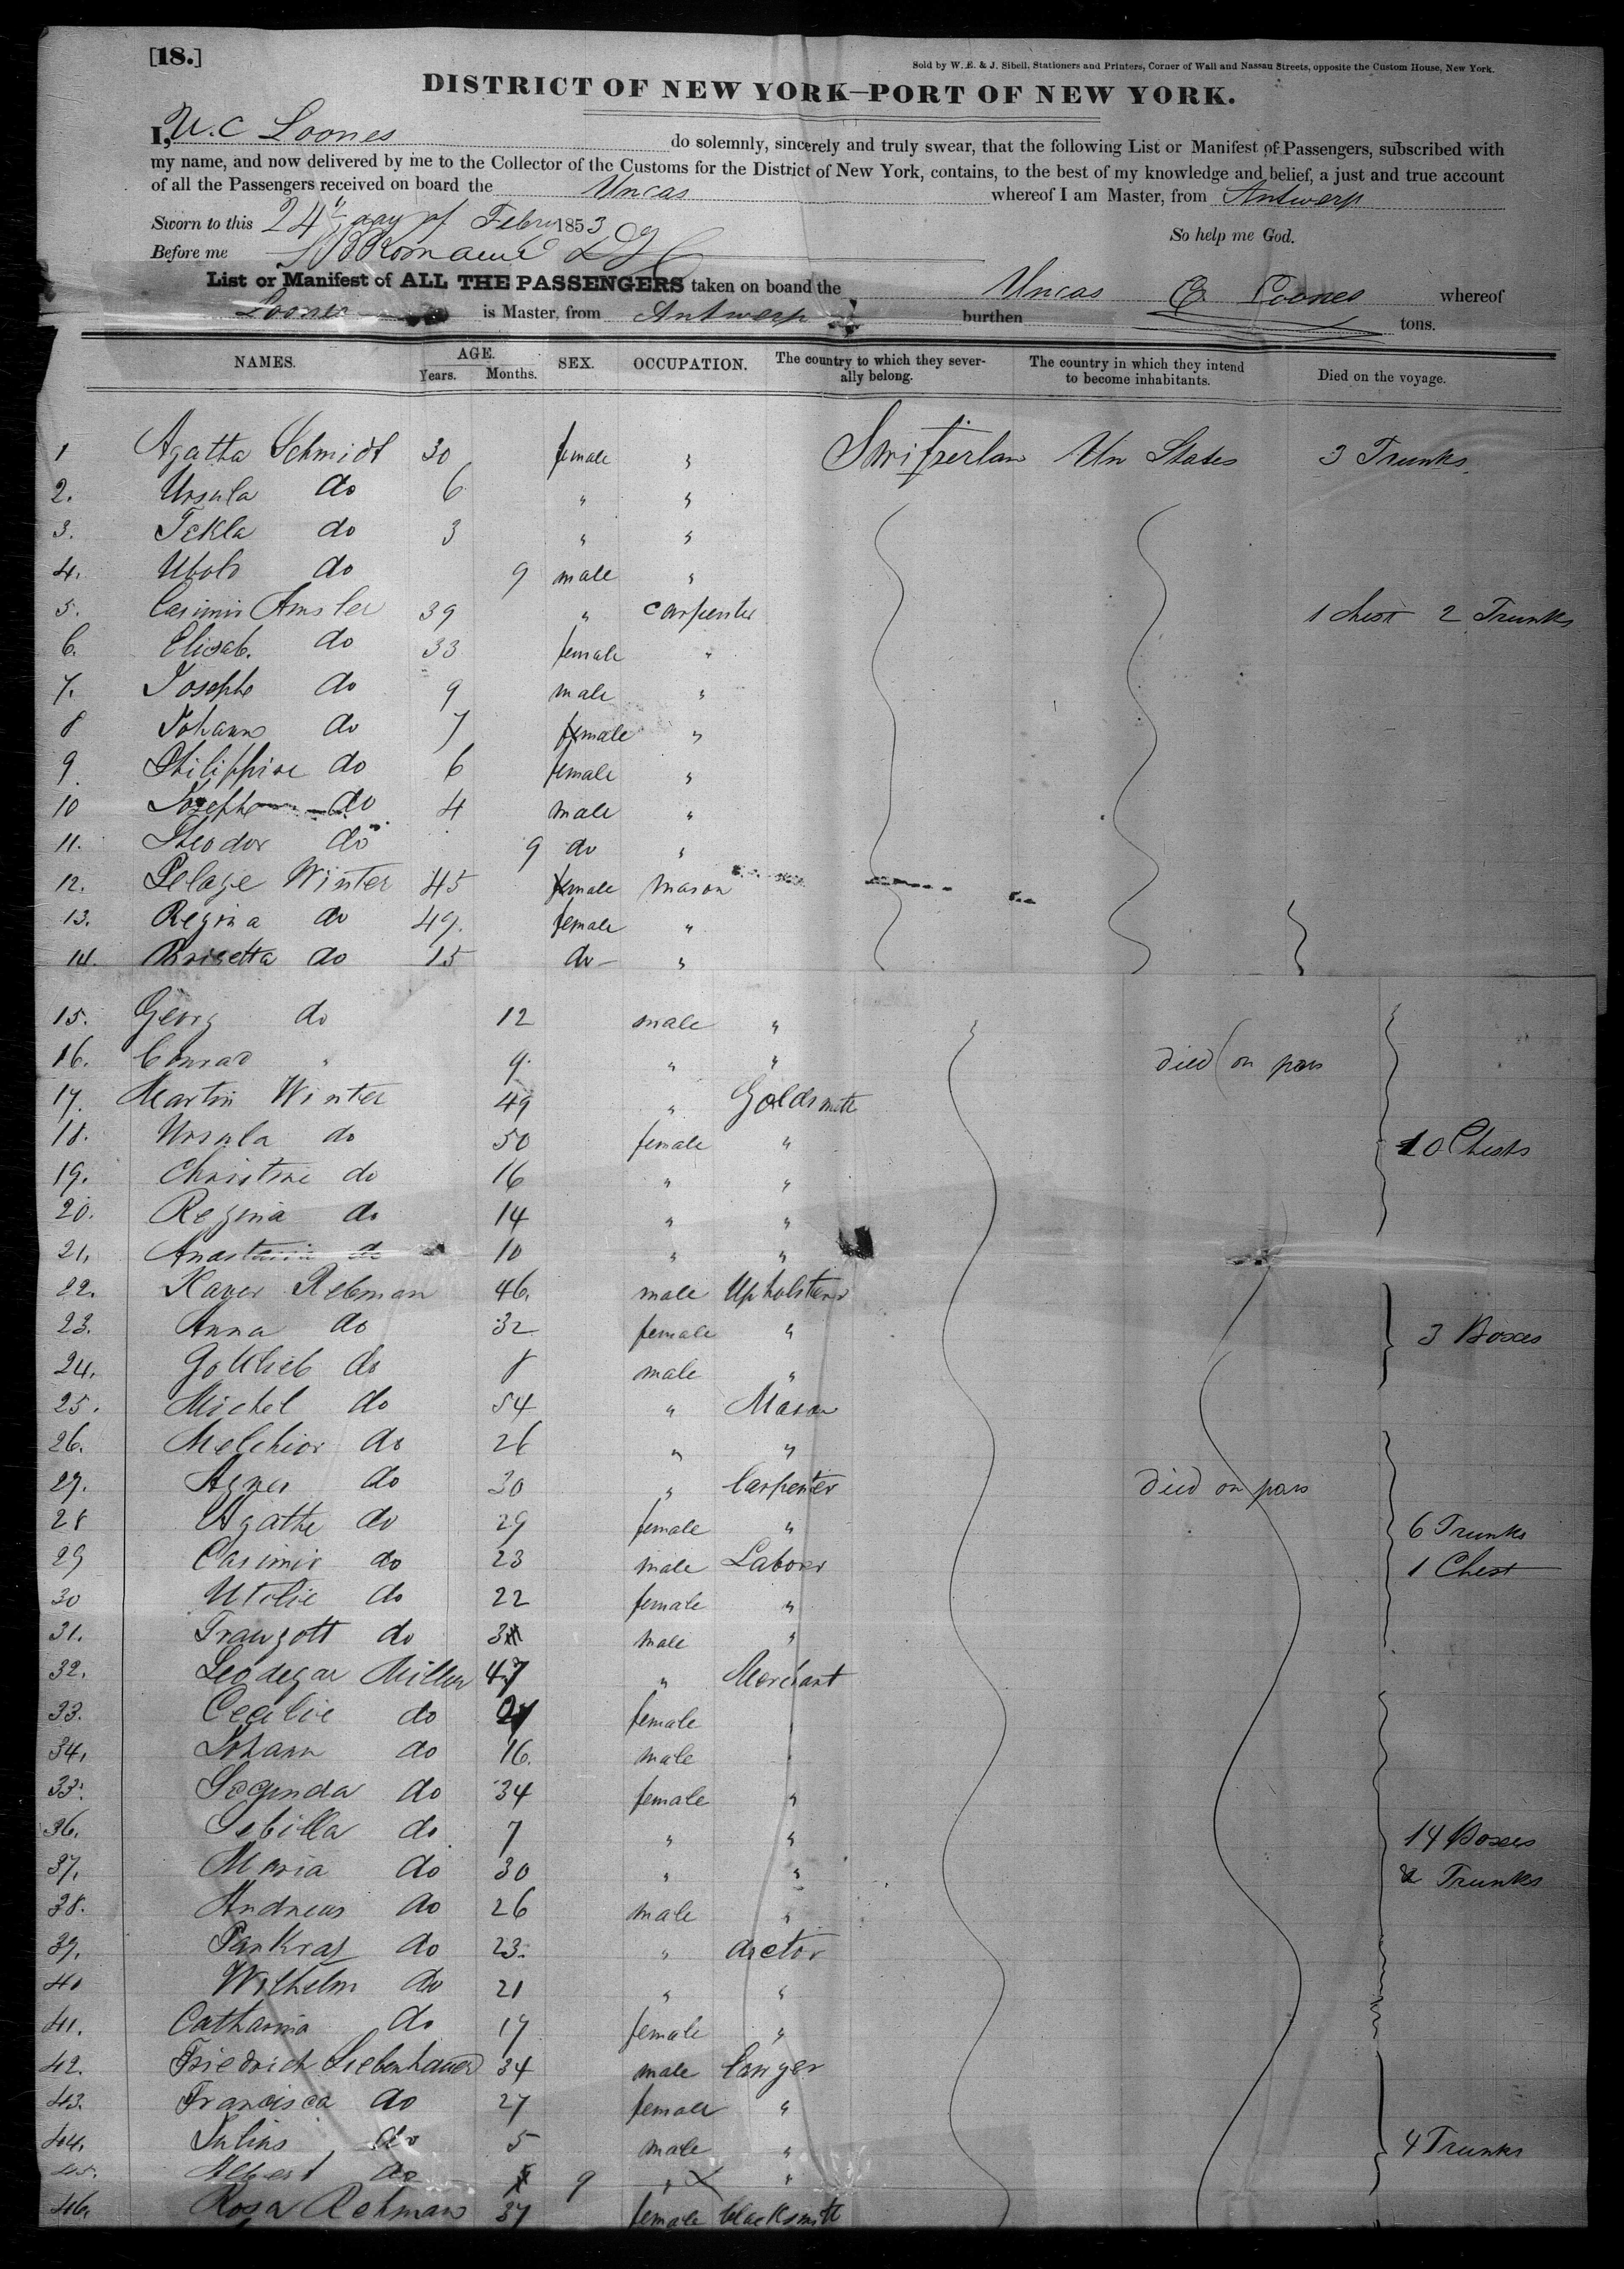 [18.]
Sold by W. E. & J. Sibell, Stationers and Printers, Corner of Wall and Nassau Streets, opposite the Custom House, New York.
DISTRICT OF NEW YORK—PORT OF NEW YORK.
I, U.C Loones do solemnly, sincerely and truly swear, that the following List or Manifest of Passengers, subscribed with
my name, and now delivered by me to the Collector of the Customs for the District of New York, contains, to the best of my knowledge and belief, a just and true account
of all the Passengers received on board the Uncas whereof I am Master, from Antwerp
Sworn to this 24th day of Febry 1853 So help me God.
Before me
List or Manifest of ALL THE PASSENGERS taken on boand the Uncas Loones whereof
Loones is Master, from Antwerp burthen tons.
NAMES. AGE. Years. Months. SEX. OCCUPATION. The country to which they severally belong. The country in which they intend to become inhabitants. Died on the voyage.
1 Agatha Schmidt 30 female " Switzerlan Un States 3 Trunks
2. Ursula do 6 " "
3. Tekla do 3 " "
4. do 9 male "
5. Casimir Amsler 39 " carpenter 1 chest 2 Trunks
6. Elisab. do 33 female "
7. Joseph do 9 male "
8 Johann do 7 male "
9 Philippine do 6 female "
10 do 4 male "
11. Theodor do 9 do "
12. Pelage Winter 45 male mason
13. Regina do 49. female "
14. do 15 do "
15. Georg do 12 male "
16. Conrad " 9. " " died on pass
17. Martin Winter 49 " Goldsmith
18. Ursula do 50 female " 10 Chests
19. Christine do 16 " "
20. Regina do 14 " "
21. do 10 " "
22. Xaver Rebman 46. male Upholsterer
23. Anna do 32 female " 3 Boxes
24. Gottlieb do 8 male "
25. Michel do 54 " Mason
26. Melchior do 26 " "
27. Agnes do 30 " Carpenter died on pass
28 Agathe do 29 female " 6 Trunks
29 Casimir do 23 male Laborer 1 Chest
30 do 22 female "
31. Traugott do male "
32. Leodegar Miller 47 " Merchant
33. Cecilie do female
34. Johann do 16. male
35. do 34 female "
36. Sebilla do 7 " " 14 Boxes
37. Maria do 30 " " & Trunks
38. Andreas do 26 male "
39. Pankraz do 23. " doctor
40 Wilhelm do 21 " "
41. Catharina do 17 female "
42. Friedrich 34 male lawyer
43. Francisca do 27 female "
44. Julius do 5 male " 4 Trunks
45. Albert do 9 "
46. Rosa Rebman 37 female blacksmith